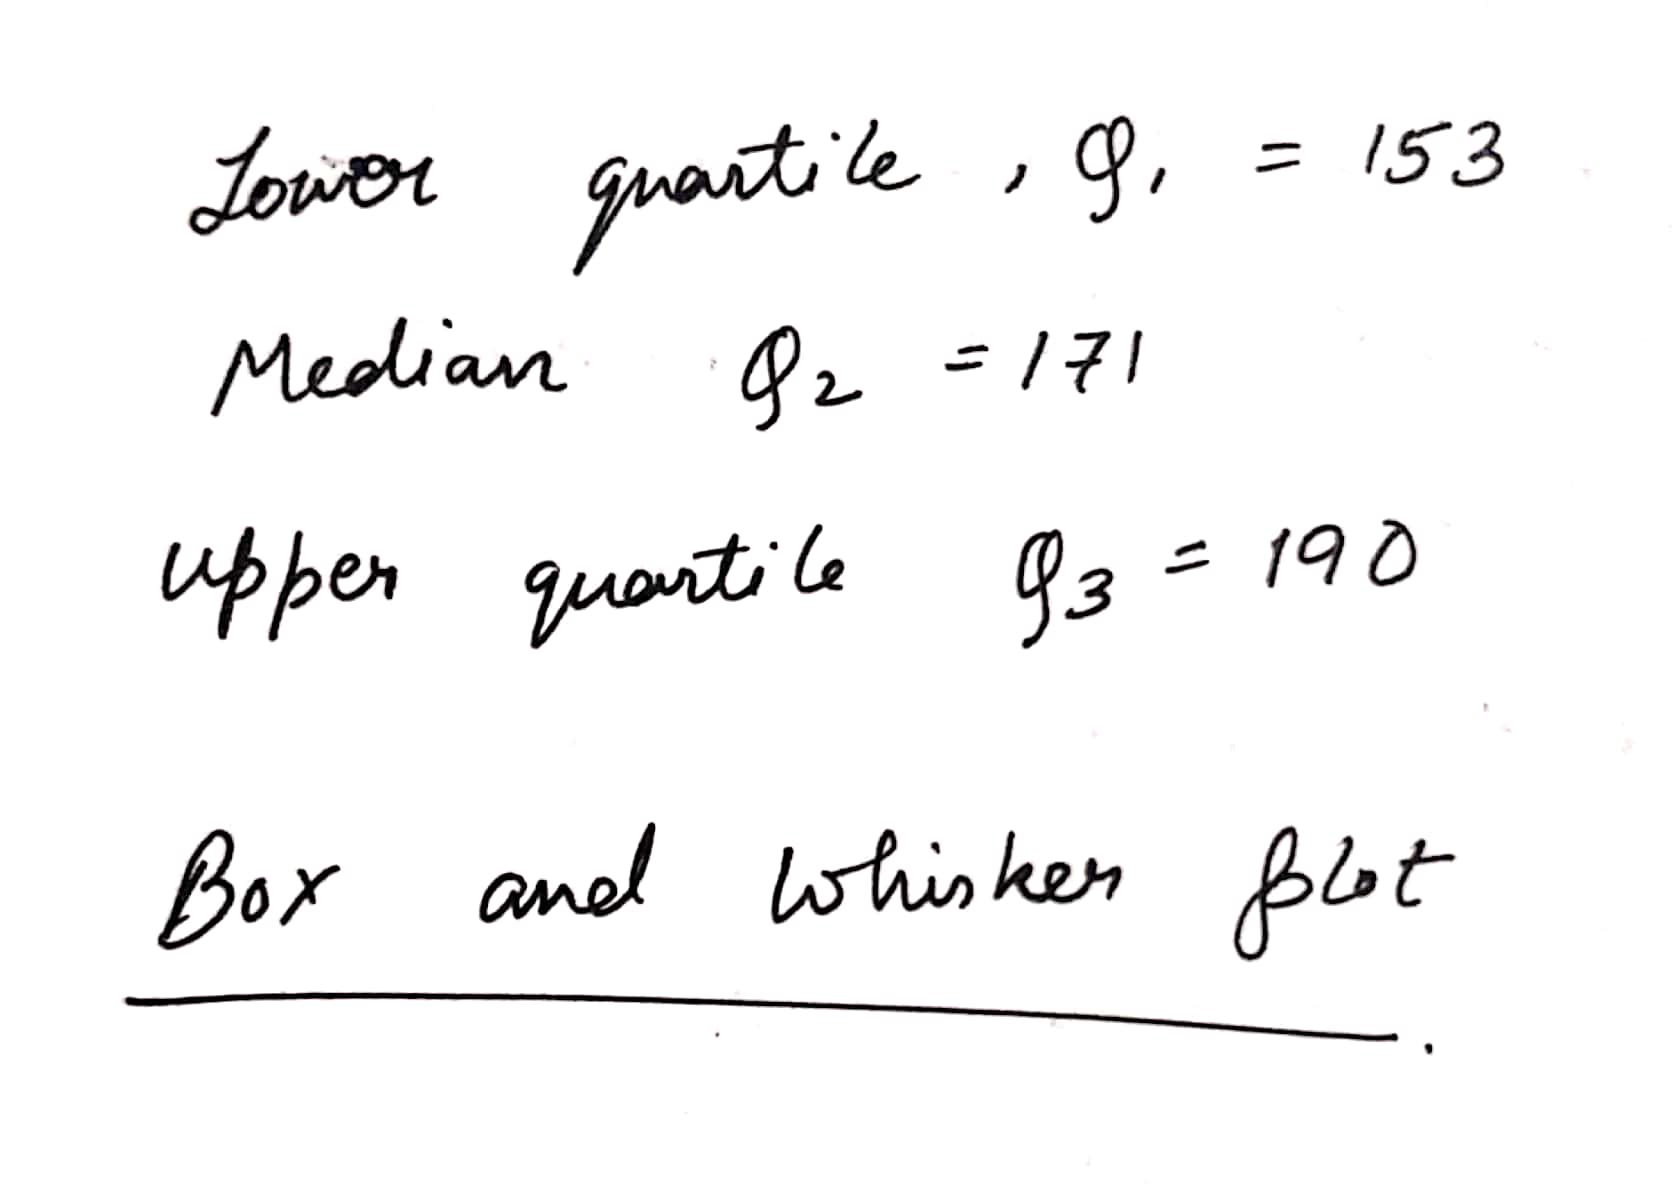 Lower quartile, Q1 = 153
Median Q2 = 171
Upper quartile Q3 = 190
Box and Whisker plot